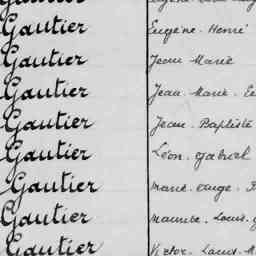 Gautier Eugène. Henri
Gautier Jean Marie
Gautier Jean. Marie.
Gautier Jean. Baptiste
Gautier Léon. Gabriel
Gautier Marie. Ange.
Gautier Maurice. Louis.
Gautier Victor. Louis. M